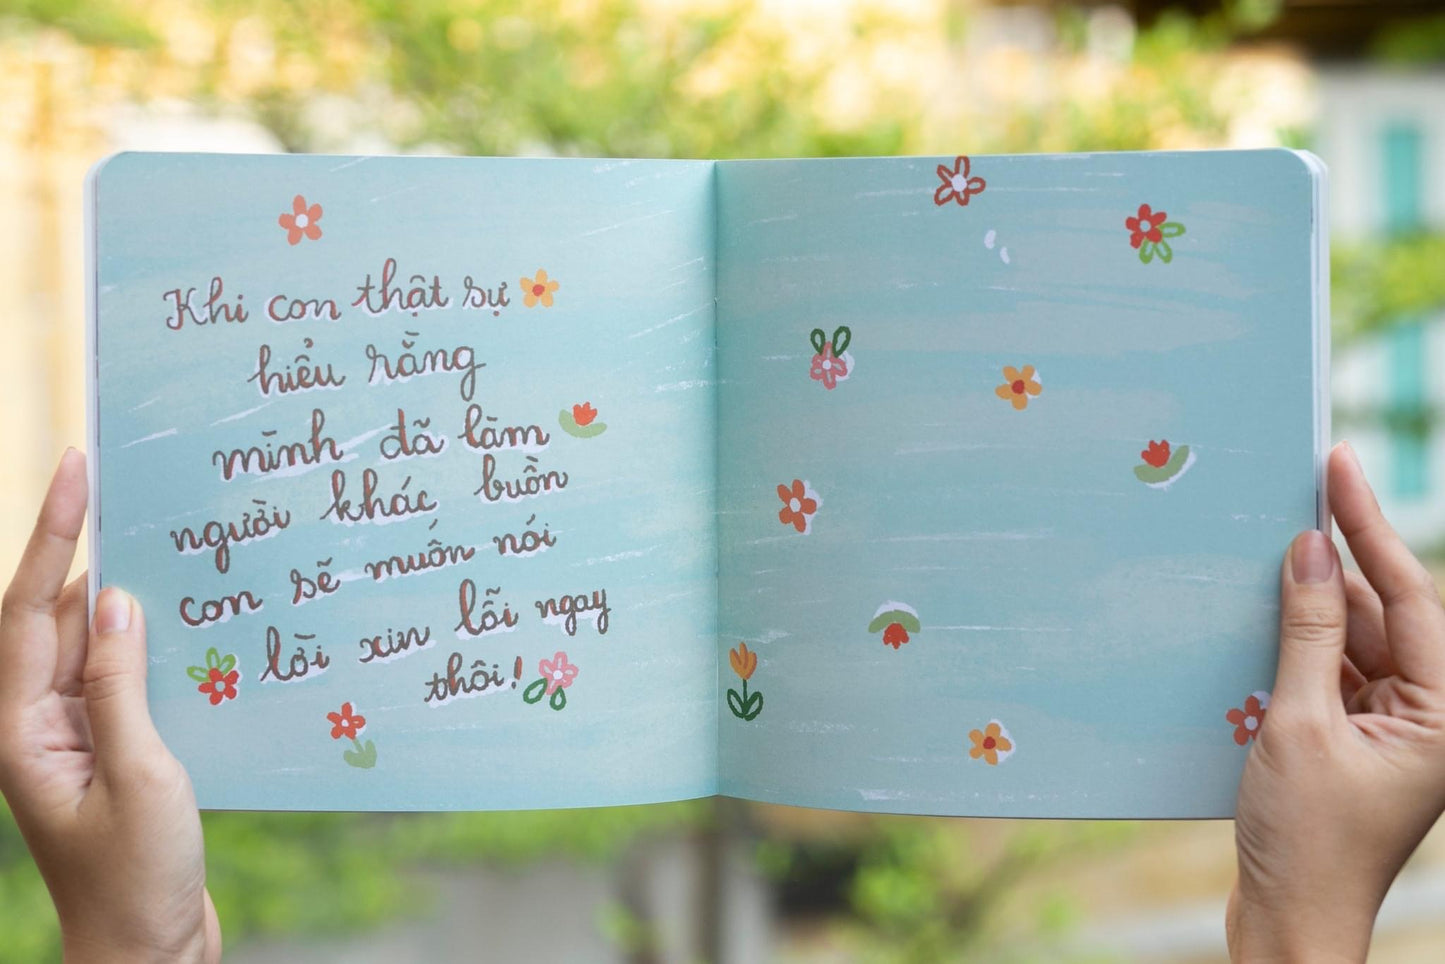 Khi con thật sự
hiểu rằng
mình đã làm
người khác buồn
con sẽ muốn nói
lời xin lỗi ngay
thôi!